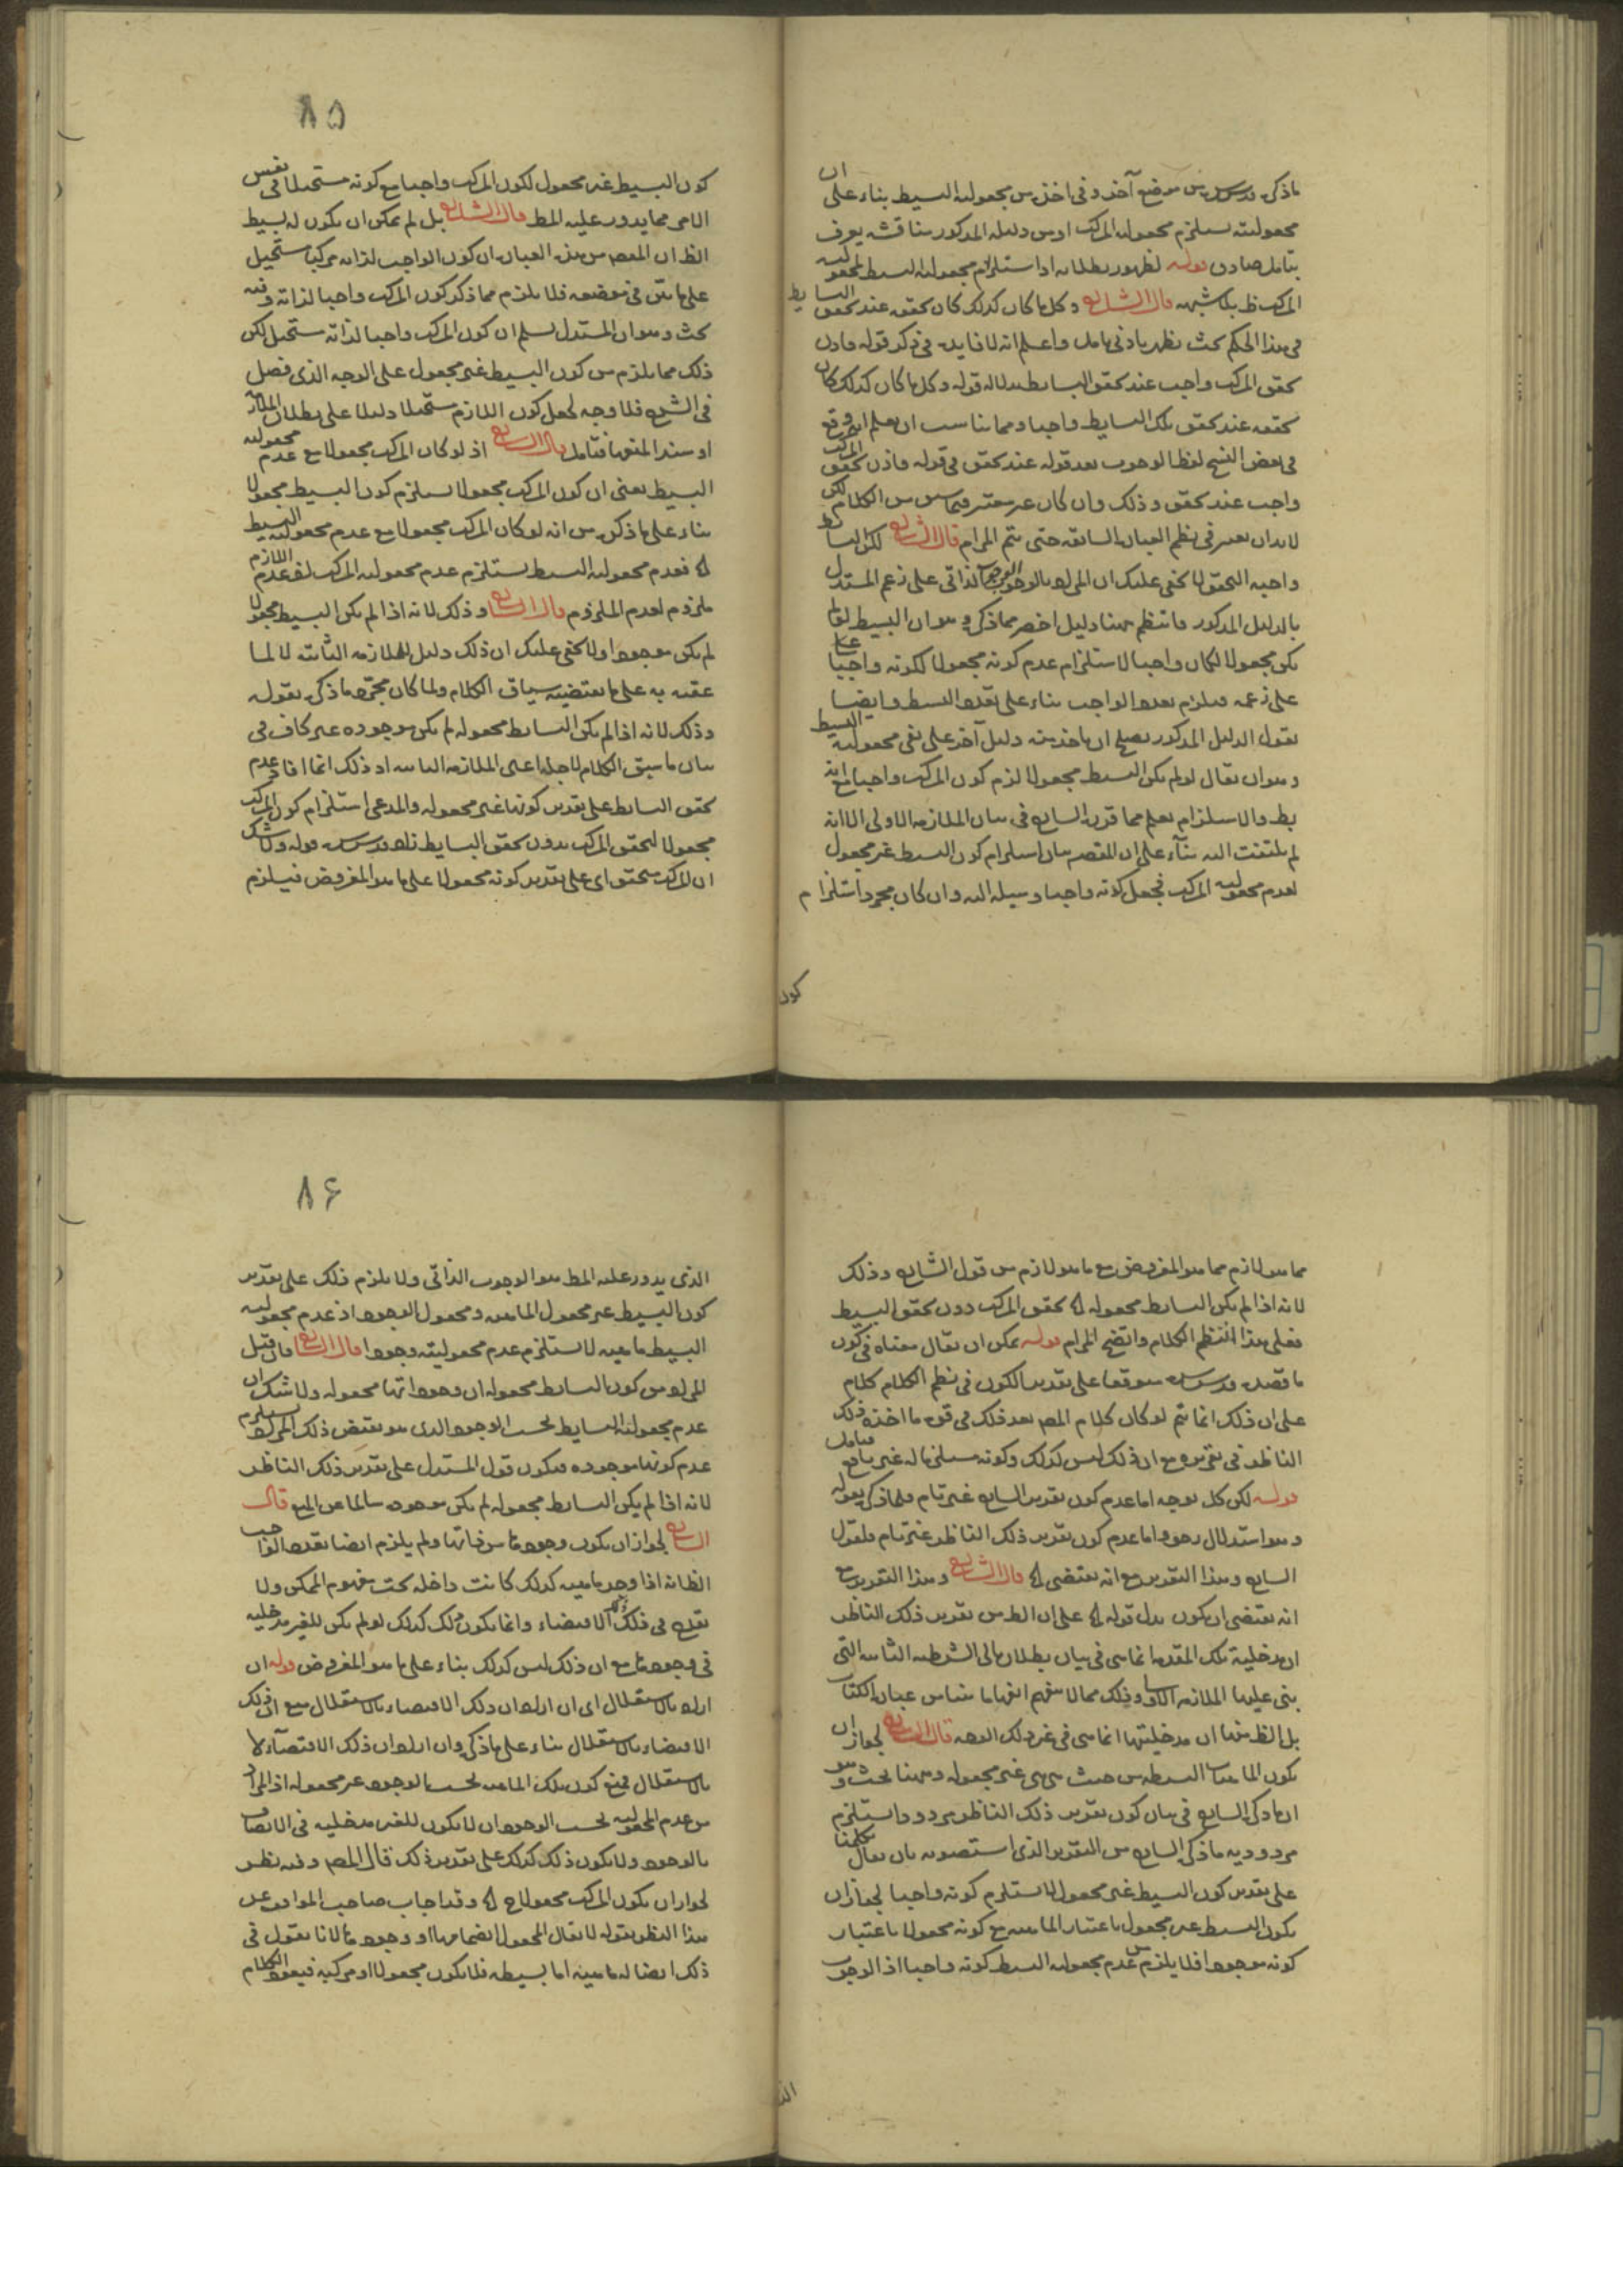 ما ذكره قدس سره من موضع آخر وفى اخذ من مجعولية البسيط بناء على ان
مجعوليته يستلزم مجعولية المركب او من دليله المذكور مناقشة يعرف
بتامل صادق قوله لظهور بطلانه اذ استلزام مجعولية البسيط لمجعولية
المركب ظ بلا شبهه قال الشارح وكل ما كان كذلك كان تحققه عند تحقق البسايط
فى هذا الحكم بحث يظهر بادنى تامل واعلم انه لا فايدة فى ذكر قوله فاذن
تحقق المركب واجب عند تحقق البسايط بدلالة قوله وكل ما كان كذلك كان
تحققه عند تحقق تلك البسايط واجبا ومما يناسب ان يعلم انه وقع
فى بعض النسخ لفظ الوجوب بعد قوله عند تحقق فى قوله فاذن تحقق المركب
واجب عند تحقق وذلك وان كان غير معتبر فيما سبق من الكلام لكن
لا بد ان يعتبر فى نظم العبارة السابقة حتى يتم المرام قال الشارح لكن البسايط
واجبة التحقق لا يخفى عليك ان المراد بالوجوب الوجوب الذاتى على زعم المستدل
بالدليل المذكور فانتظم ههنا دليل اخصر مما ذكره وهو ان البسيط لو لم
يكن مجعولا لكان واجبا لاستلزام عدم كونه مجعولا لكونه واجبا
على زعمه فيلزم تعدد الواجب بناء على تعدد البسيط وايضا
نقول الدليل المذكور يصلح ان ياخذ منه دليل آخر على نفى مجعولية البسيط
وهو ان يقال لو لم يكن البسيط مجعولا لزم كون المركب واجبا مع انه
بط والاستلزام يعلم مما قرره الشارح فى بيان الملازمة الاولى الا انه
لم يلتفت اليه بنآء على ان المقصد بيان استلزام كون البسيط غير مجعول
لعدم مجعولية المركب فجعل كونه واجبا وسيلة اليه وان كان مجرد استلزام
كون
٨٥
كون البسيط غير مجعول لكون المركب واجبا مع كونه مستحيلا فى نفس
الامر مما يدور عليه المط قال الشارح بل لم يمكن ان يكون له بسيط
الظ ان المقصد من هذه العبارة ان كون الواجب لذاته مركبا مستحيل
على ما بين فى موضعه فلا يلزم مما ذكر كون المركب واجبا لذاته وفيه
بحث وهو ان المستدل يسلم ان كون المركب واجبا لذاته مستحيل لكن
ذلك مما يلزم من كون البسيط غير مجعول على الوجه الذى فصل
فى الشرح فلا وجه لجعل كون اللازم مستحيلا دليلا على بطلان الملازمة
او سند المنعها فتامل قال الشارح اذ لو كان المركب مجعولا مع عدم مجعولية
البسيط يعنى ان كون المركب مجعولا يستلزم كون البسيط مجعولا
بناء على ما ذكره من انه لو كان المركب مجعولا مع عدم مجعولية البسيط
الخ فعدم مجعولية البسيط يستلزم عدم مجعولية المركب لان عدم اللازم
ملزوم لعدم الملزوم قال الشارح وذلك لانه اذا لم يكن البسيط مجعولا
لم يكن موجودا ولا يخفى عليك ان ذلك دليل للملازمة الثانية لا لما
عقبه به على ما يقتضيه سياق الكلام ولما كان مجرد ما ذكره بقوله
وذلك لانه اذا لم يكن البسايط مجعوله لم يكن موجوده غير كاف فى
بيان ما سيق الكلام لاجله اعنى الملازمة الثانية اذ ذلك انما افاد عدم
تحقق البسايط على تقدير كونها غير مجعوله والمدعى استلزام كون المركب
مجعولا لتحقق المركب بدون تحقق البسايط زاد قدس سره قوله ولا شك
ان المركب متحقق اى على تقدير كونه مجعولا على ما هو المفروض فيلزم
مما هو لازم مما هو المفروض مع ما هو لازم من قول الشارح وذلك
لانه اذا لم يكن البسايط مجعوله الخ تحقق المركب دون تحقق البسيط
فعلى هذا انتظم الكلام واتضح المرام قوله يمكن ان يقال معناه فى كون
ما قصده قدس سره موقوفا على تقدير الكون فى نظم الكلام كلام
على ان ذلك انما يتم لو كان كلام المصد بعد ذلك فى قوة ما اخذه ذلك
الناظر فى تقريره مع ان ذلك ليس كذلك وكونه مستلزما له غير نافع فتامل
قوله لكن كل توجه اما عدم كون تقرير الشارح غير تام فلما ذكره بقوله
وهو استدلال  واما عدم كون تقرير ذلك الناظر غير تام فلقول
الشارح وهذا التقرير مع انه يقتضى الخ قال الشارح وهذا التقرير مع
انه يقتضى ان يكون بدل قوله الخ على ان الظ من تقرير ذلك الناظر
ان مدخلية تلك المقدمة انما هى فى بيان بطلان تالى الشرطية الثانية التى
بنى عليها الملازمة الاولى وذلك مما لا يفهم انفهاما مناسب عبارة الكتاب
بل الظ منها ان مدخليتها انما هى فى غير ذلك الوجه قال الشارح لجواز ان
يكون الماهيات البسيطة من حيث هى هى غير مجعوله وههنا بحث وهو
ان ما ذكره الشارح فى بيان كون تقرير ذلك الناظر مردودا يستلزم
مردودية ما ذكره الشارح من التقرير الذى استصوبه بان يقال يمكننا
على تقدير كون البسيط غير مجعول لا يستلزم كونه واجبا لجواز ان
يكون البسيط غير مجعول باعتبار الماهية مع كونه مجعولا باعتبار
كونه موجودا فلا يلزم من عدم مجعولية البسيط كونه واجبا اذ الوجوب
الذ
٨۶
الذى يدور عليه المط هو الوجوب الذاتى ولا يلزم ذلك على تقدير
كون البسيط غير مجعول الماهية ومجعول الوجود اذ عدم مجعولية
البسيط ماهيه لا يستلزم عدم مجعوليته وجودا قال الشارح فان قيل
المراد من كون البسايط مجعوله ان وجوداتها مجعوله ولا شك ان
عدم مجعولية البسايط بحسب الوجود الذى هو نقيض ذلك المراد يستلزم
عدم كونها موجوده فيكون قول المستدل على تقدير ذلك الناظر
لانه اذا لم يكن البسايط مجعوله لم يكن موجوده سالما عن المنع قال
الشارح لجواز ان يكون وجودها من ذاتها ولم يلزم ايضا تعدد الواجب
الظ انه اذا وجد ماهيه كذلك كانت داخله تحت مفهوم الممكن ولا
يقدح فى ذلك ذلك الاقتضاء وانما يكون ذلك كذلك لو لم يكن للغير مدخلية
فى وجودها مع ان ذلك ليس كذلك بناء على ما هو المفروض قوله ان
اراد بالاستقلال اى ان اراد ان ذلك الاقتضاء بالاستقلال منع ان ذلك
الاقتضاء بالاستقلال بناء على ما ذكره وان اراد ان ذلك الاقتضآء لا
بالاستقلال فمنع كون تلك الماهية بحسب الوجود غير مجعوله اذ المراد
من عدم المجعولية بحسب الوجود ان لا يكون للغير مدخليه فى الاتصاف
بالوجود ولا يكون ذلك كذلك على تقدير ذلك قال المصد وفيه نظر
لجواز ان يكون المركب مجعولا الخ وقد اجاب صاحب المواقف عن
هذا النظر بقوله لا يقال المجعول انضمامها او وجودها لانا نقول فى
ذلك ايضا له ماهية اما بسيطه فلا يكون مجعولا او مركبه فيعود الكلام